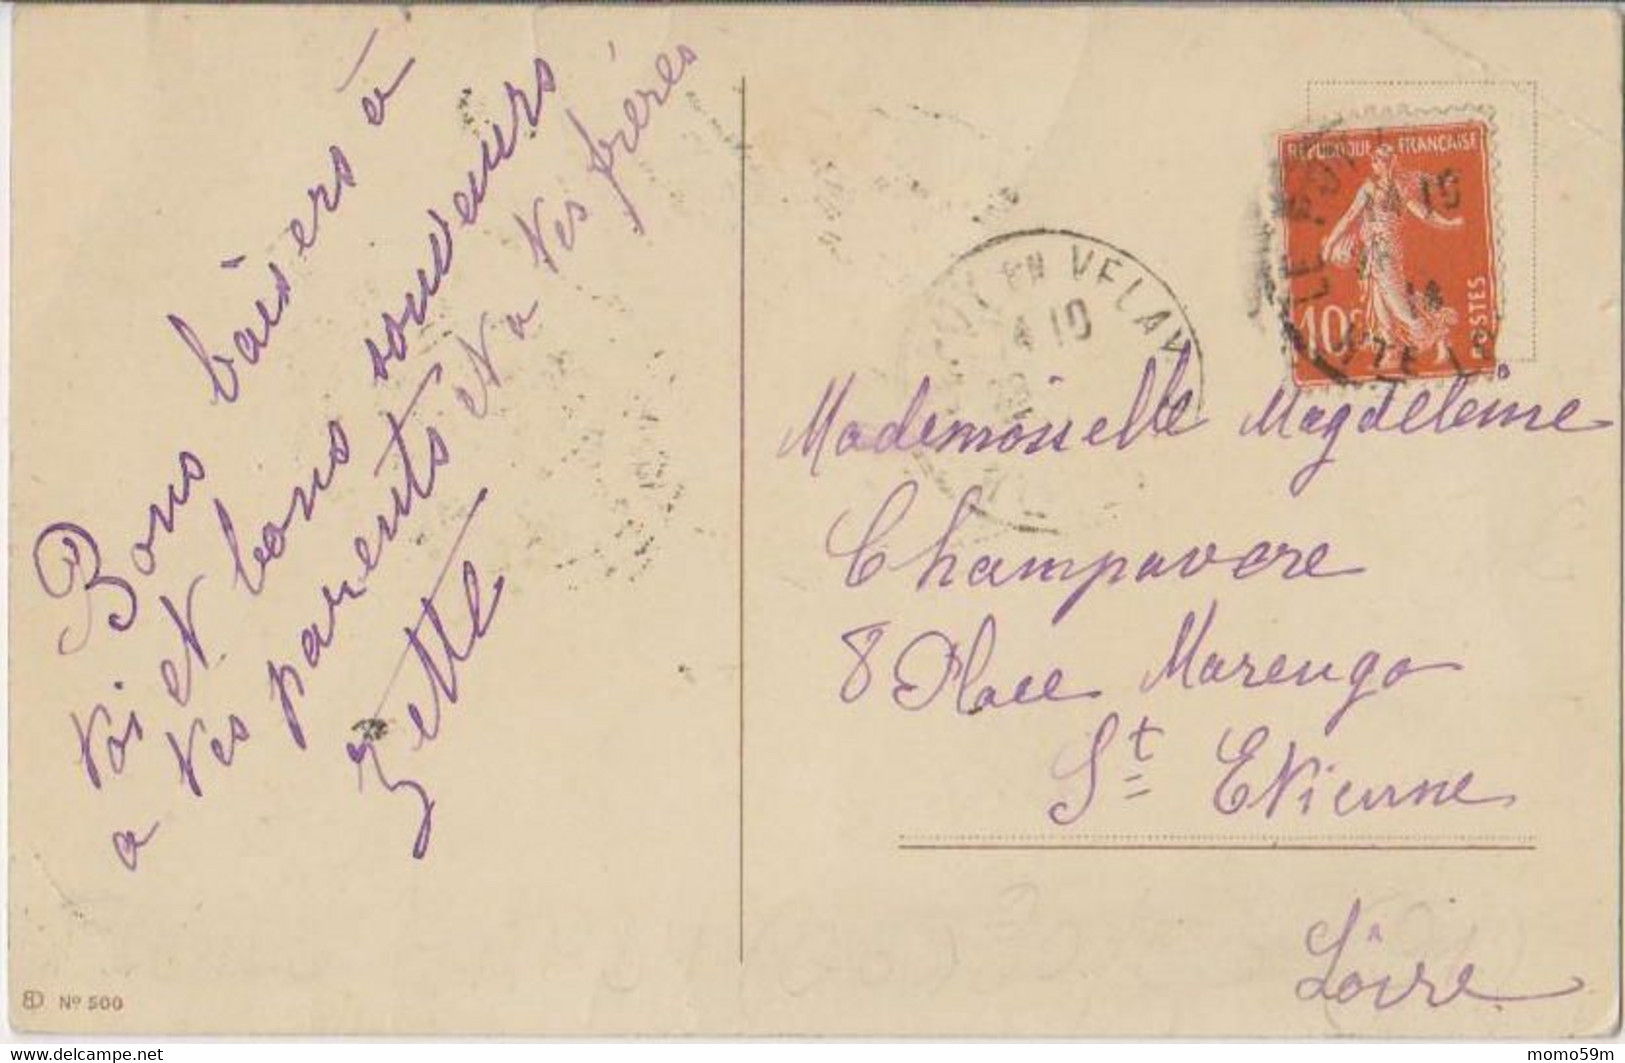 Bons baisers à
toi et bons souvenirs
a tes parents et a tes frères
Zette
RÉPUBLIQUE FRANÇAISE
10c
POSTES
EN VELAY
Mademoiselle Magdeleine
Champavere
8 Place Marengo
St Etienne
Loire
ED No 500
www.delcampe.net
momo59m